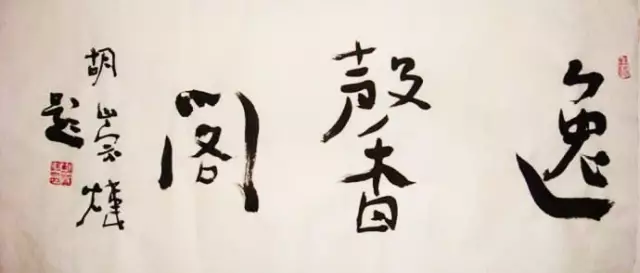 逸馨阁
胡崇煒
题